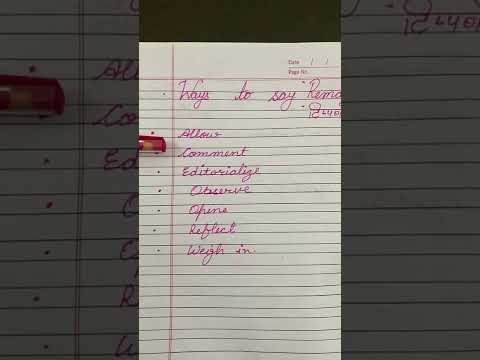 Date / /
Page No.
Ways to say "Rema
Allow
Comment
Editorialize
Observe
Opine
Reflect
Weigh in.